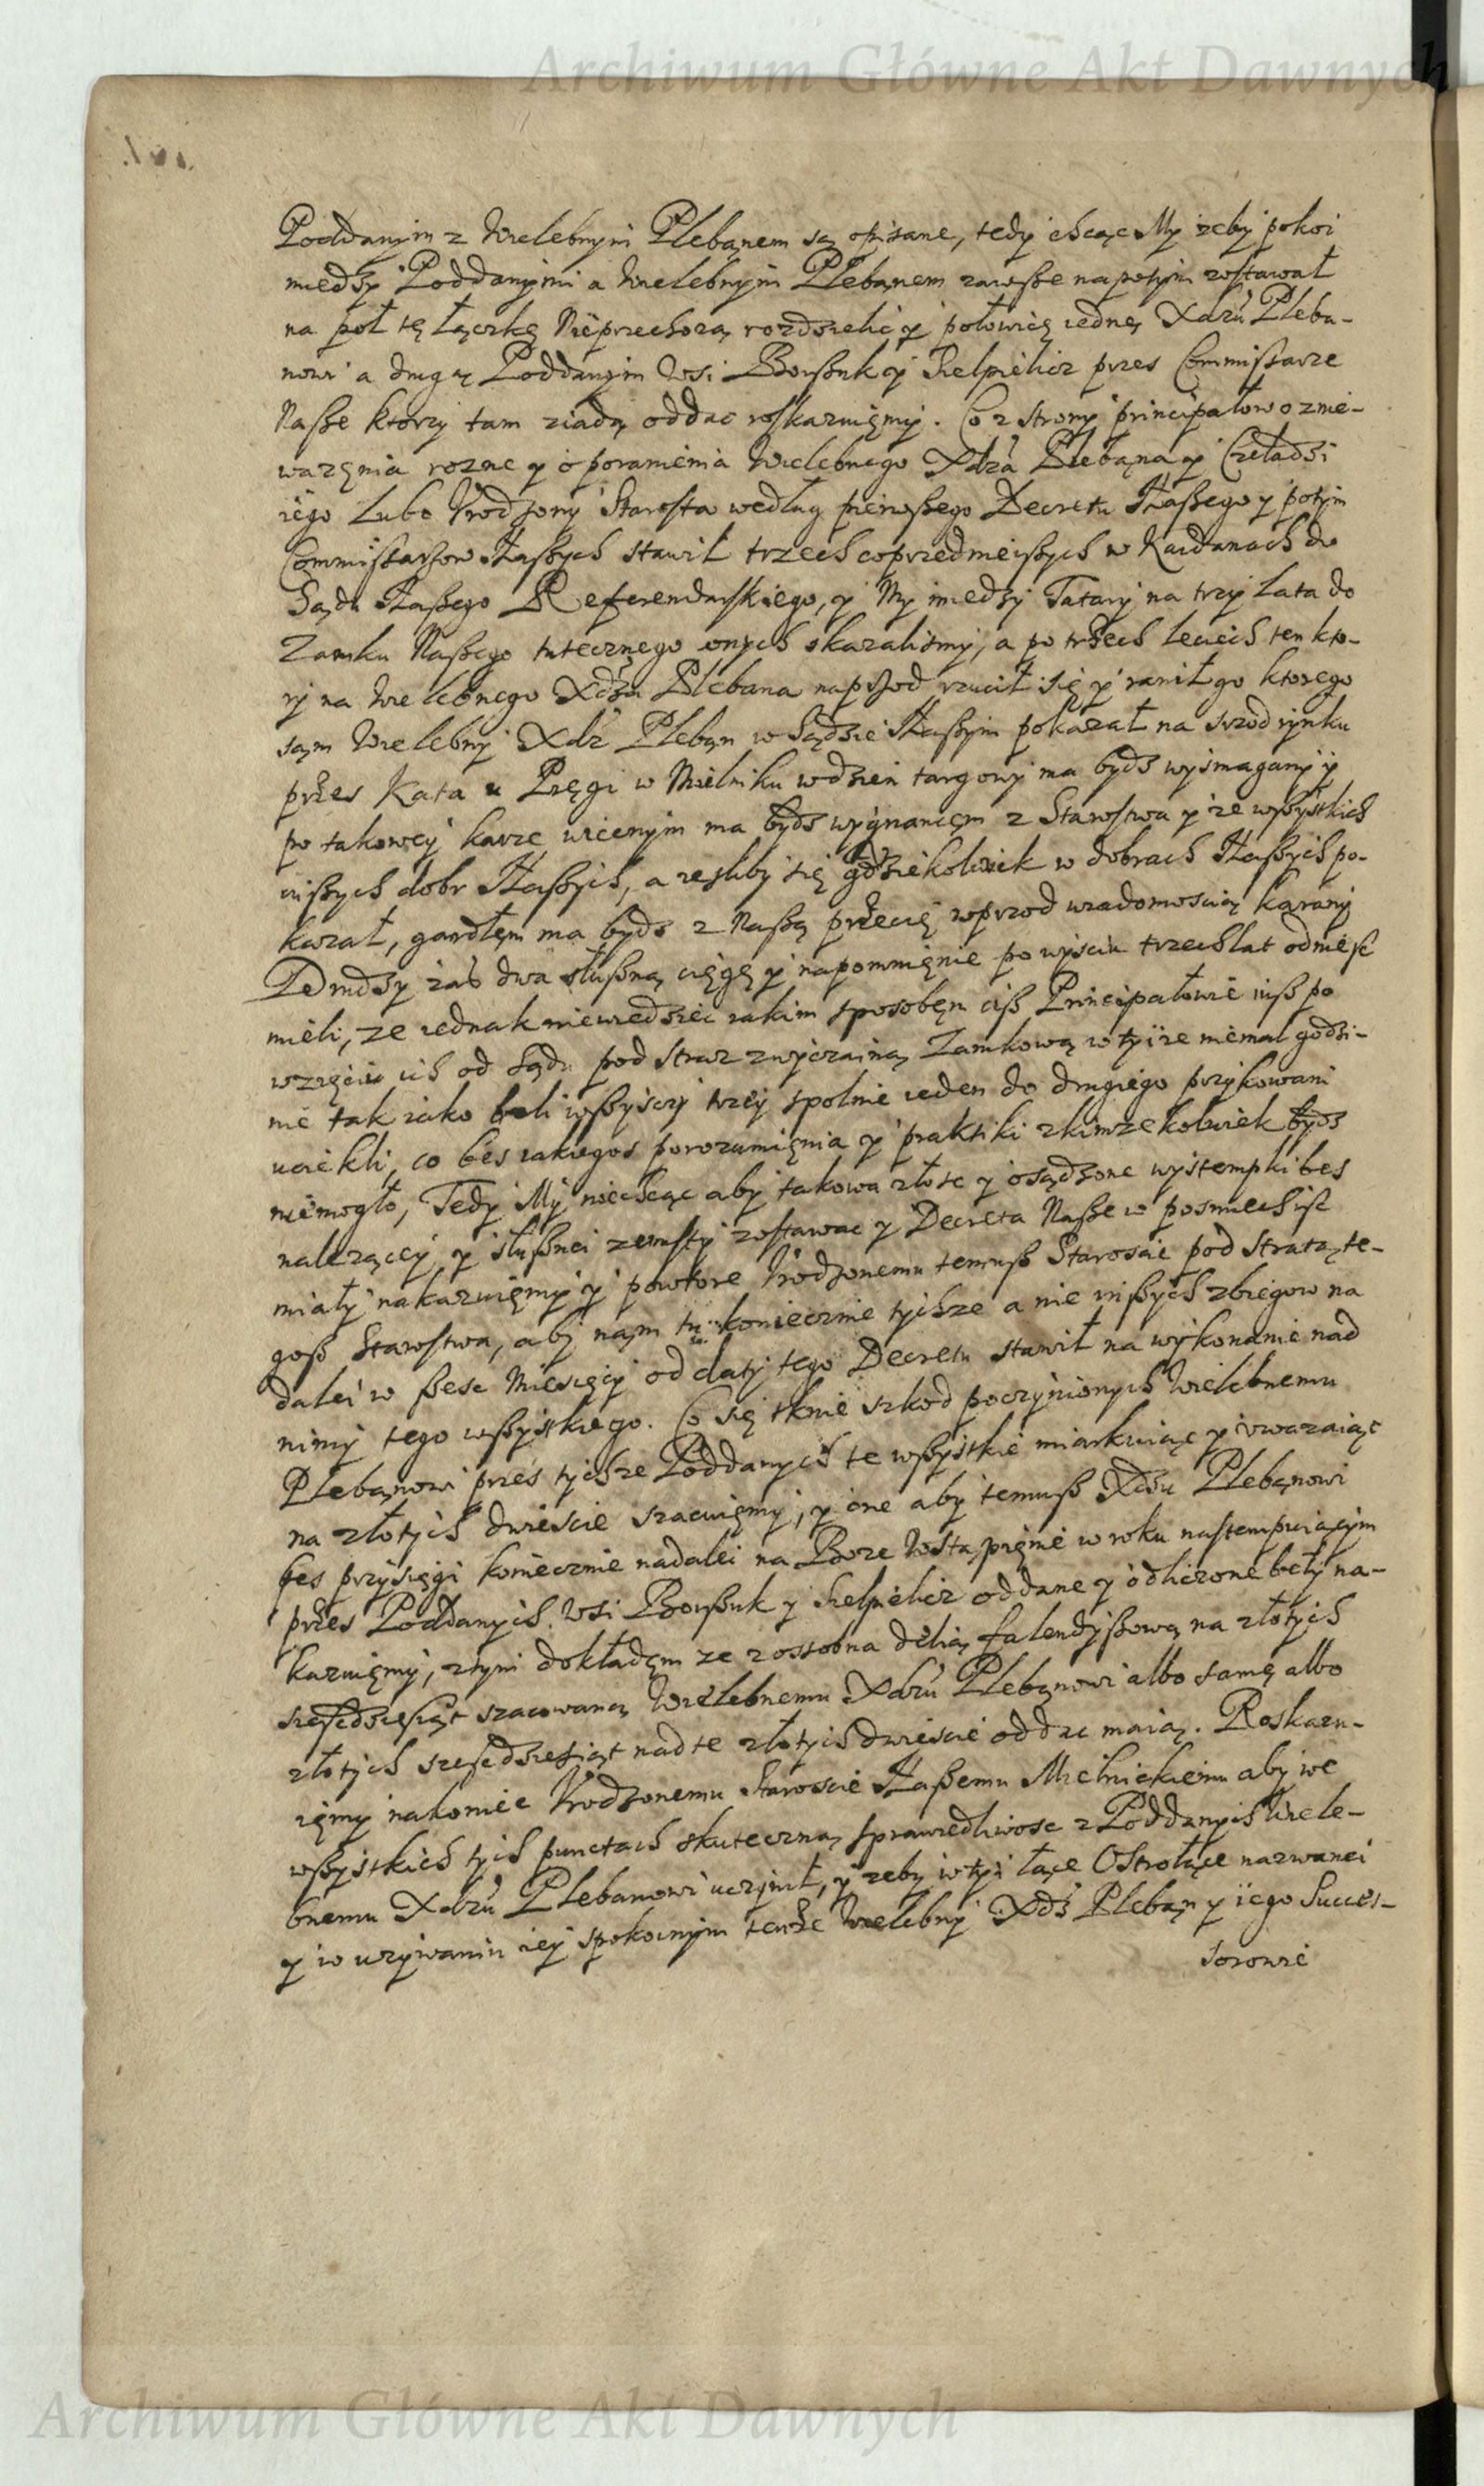 Archiwum Główne Akt Dawnych
Poddanym z Wielebnym Plebanem są opisane, tedy chcąc My żeby pokoi
miedzy Poddanymi a Wielebnym Plebąnem zawsze napotym zostawał
na poł tę łączkę Nieprzechorą rozdzielić y połowicę iednę Xdzu Pleba-
nowi a drugą Poddanym Wsi Borsuk y Sielpielicz przes Commissarze
Nasze ktorzy tam ziadą oddac roskazuięmy. Co z strony principałow o znie-
wazęnia rozne y o poranienia Wielebnego Xdza Plebąna y Czeladzi
iego Lubo Vrodzony Starosta według pierwszego Decretu Naszego y potym
Commissarzow Naszych stawił trzech coprzednieiszych w Kaidanach do
Sądu Naszego Referendarskiego, y My miedzy Tatary na trzy Lata do
Zamku Naszego tutecznego onych skazalismy, a po trzech leciech ten kto-
ry na Wielebnego Xdza Plebana naprzod rzucił się y ranił go ktorego
sąm Wielebny Xdz Plebąn w Sądzie Naszym pokazał na srzod rynku
przes Kata u Pręgi w Mielniku w dzien targowy ma bydz wysmagany y
po takowey karze wiecznym ma bydz wygnaniem z Starostwa y ze wszystkich
inszych dobr Naszych, a iesliby się gdziekolwiek w dobrach Naszych po-
kazał, gardłęm ma bydz z Naszą przecię wprzod wiadomoscią karany
Drudzy zas dwa słuszną cięgę y napomnięnie po wysciu trzech lat odniesc
mieli, ze iednak niewiedziec iakim sposobęm cisz Principałowie iusz po
wzięciu ich od Sądu pod straz zwyczainą Zamkową w tyize niemal godzi-
nie tak iako beli wszyscy trzey spolnie ieden do drugiego przykowani
uciekli, co bes iakiegos porozumięnia y praktiki zkimzekolwiek bydz
niemogło, Tedy My niechcąc aby takowa złosc y osądzone wystempki bes
nalezącey y słusznei zemsty zostawac y Decreta Nasze w posmiech isc
miały nakazuięmy y powtore Vrodzonemu temusz Staroscie pod stratą te-
gosz Starostwa, aby nąm tu koniecznie tychze a nie inszych zbiegow na
dalei w szesc Miesięcy od daty tego Decretu stawił na wykonanie nad
nimy tego wszystkiego. Co się tknie szkod poczynionych Wielebnemu
Plebąnowi przes tychze Poddanych te wszystkie miarkuiąc y uwazaiąc
na złotych dwiescie szacuięmy, y one aby temusz Xdzu Plebąnowi
bes przysięgi koniecznie nadalei na Boze Wstąpięnie w roku nastempuiącym
przes Poddanych Wsi Borsuk y Sielpielicz oddane y odliczone beły na-
kazuięmy, ztym dokładęm ze z ossobna delią falendyszową na złotych
szescdziesiąt szacowaną Wielebnemu Xdzu Plebąnowi albo samę albo
złotych szescdziesiąt nad te złotych dwiescie oddac maią. Roskazu-
ięmy nakoniec Vrodzonemu Staroscie Naszemu Mielnickiemu aby we
wszystkich tych punctach skuteczną sprawiedliwosc z Poddanych Wiele-
bnemu Xdzu Plebanowi uczynił, y zeby w tyi łące Ostrołące nazwanei
y w uzywaniu iey spokoinym tenze Wielebny Xdz Plebąn y iego Succes-
sorowie
Archiwum Główne Akt Dawnych